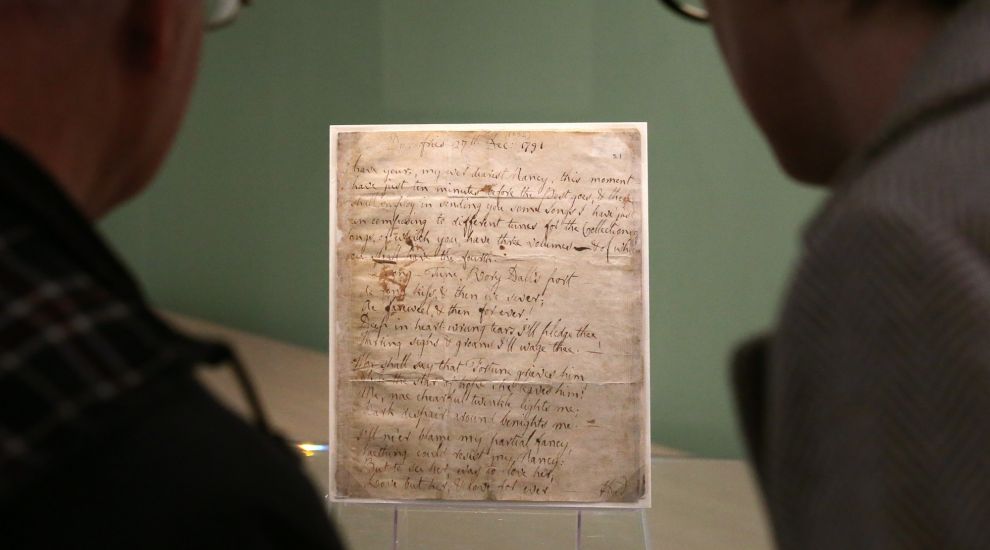 Dumfries 27th Dec: 1791
21
I have yours, my ever dearest Nancy, this moment
have just ten minutes before the Post goes, & these
shall employ in sending you some Songs I have just
been composing to different tunes for the Collection of
Songs, of which you have three volumes — & of which
you shall have the fourth. —
Song — Tune, Rory Dall's port
Ae fond kiss, & then we sever;
Ae fareweel, & then for ever!
Deep in heart-wrung tears I'll pledge thee,
Warring sighs & groans I'll wage thee. —
Wha shall say that Fortune grieves him
While the star of hope she leaves him!
Me, nae chearful twinkle lights me;
Dark despair around benights me. —
I'll ne'er blame my partial fancy,
Naething could resist my Nancy:
But to see her, was to love her,
Love but her, & love for ever —